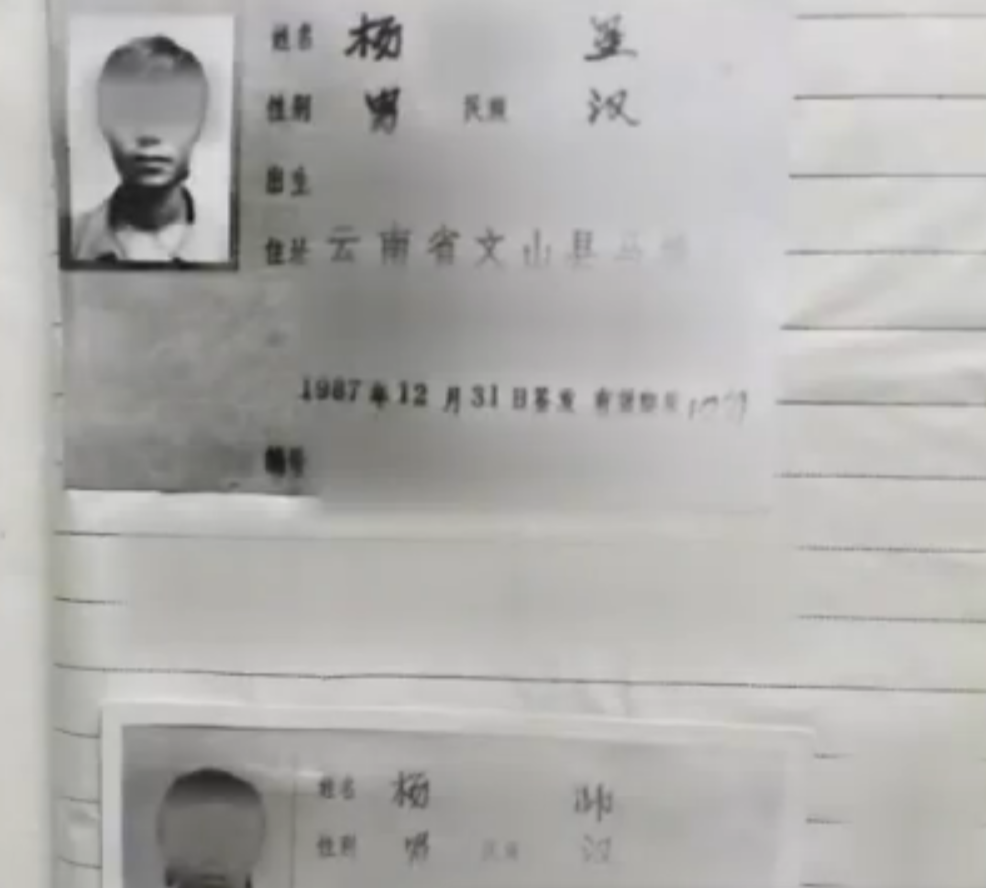 姓名 杨
性别 男 民族 汉
出生
住址 云南省文山县马
1987年12月31日签发 有效期限
编号
姓名 杨 帅
性别 男 民族 汉